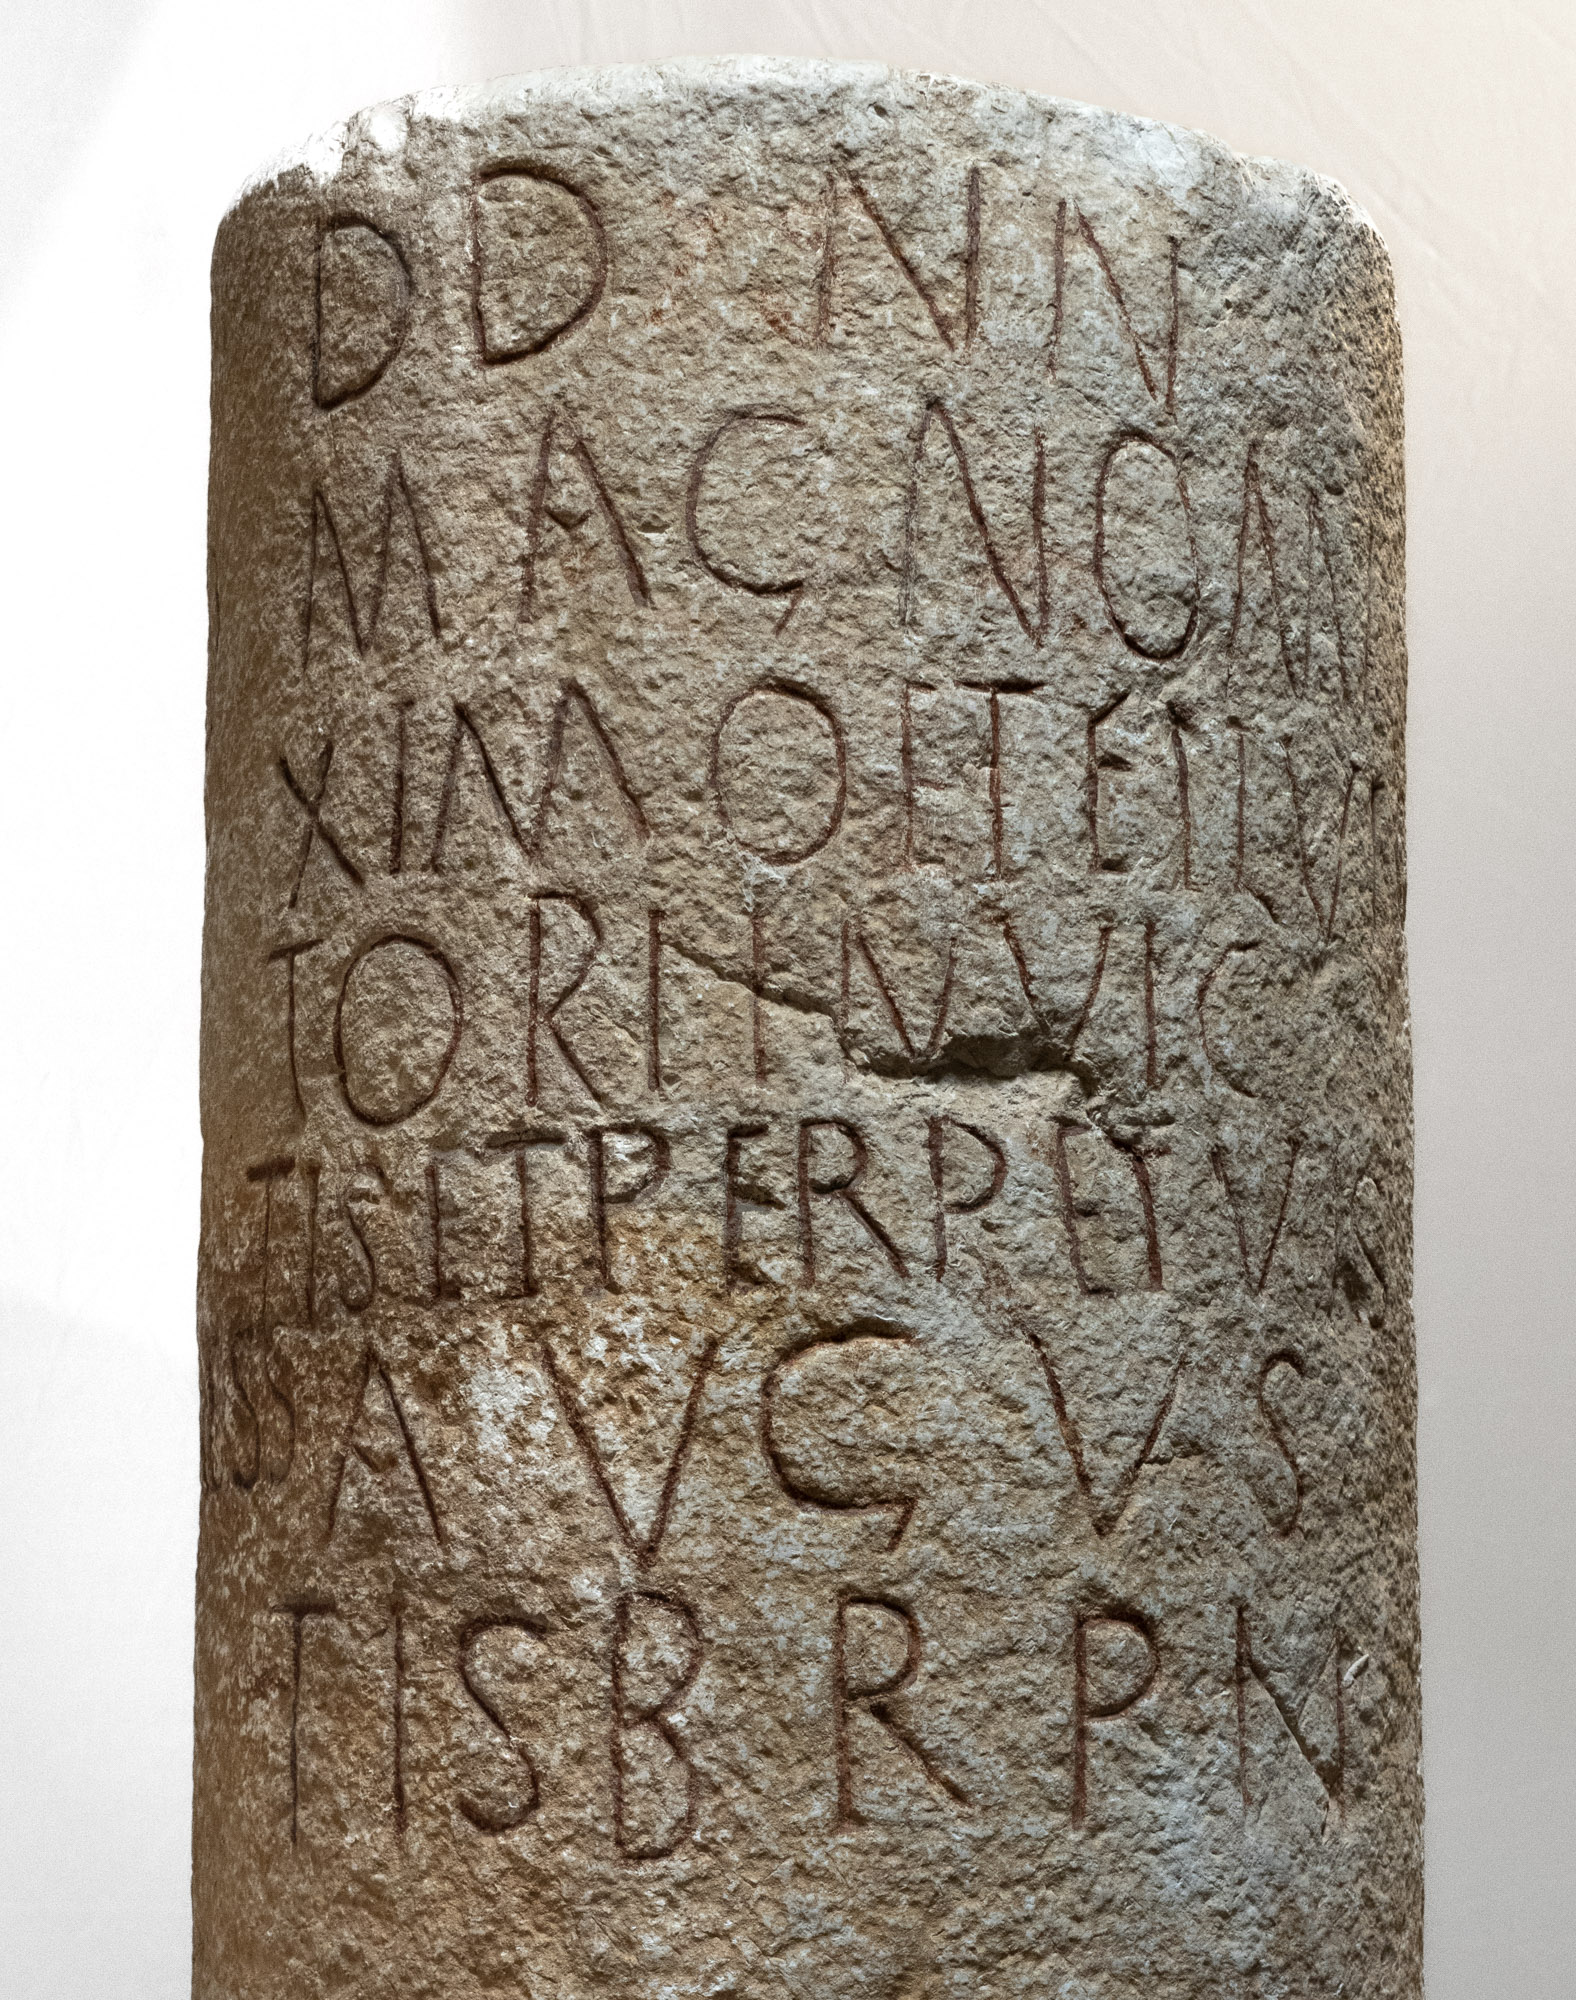 DD NN
MAGNO MA
XIMO ET FL VIC
TORI INVIC
TISETPERPETVIS
SSAVGVS
TISBRPN